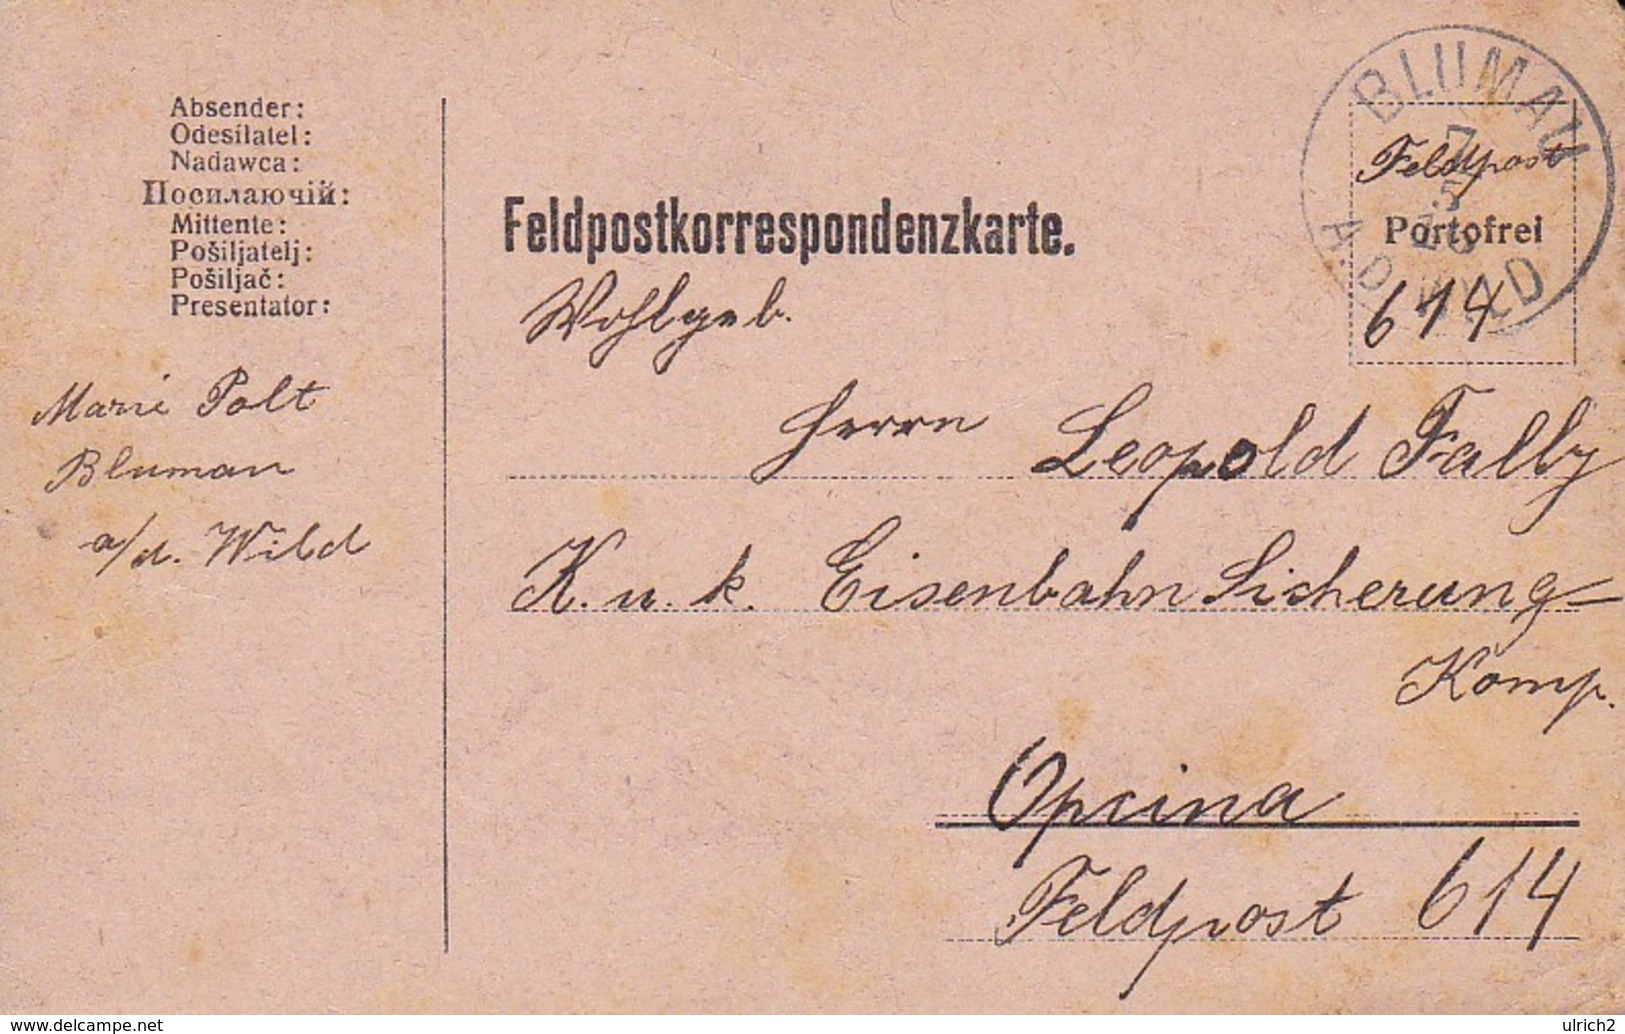 Absender:
Odesílatel:
Nadawca:
Посилаючій:
Mittente:
Pošiljatelj:
Pošiljač:
Presentator:
Marie Polt
Blumau
a/d. Wild
Feldpostkorrespondenzkarte.
BLUMAU
7
5
A.D. WILD
Feldpost
Portofrei
614
Wohlgeb.
Herrn Leopold Fally
K. u. k. Eisenbahn Sicherung-
Komp.
Opcina
Feldpost 614
delcampe.net
ulrich2